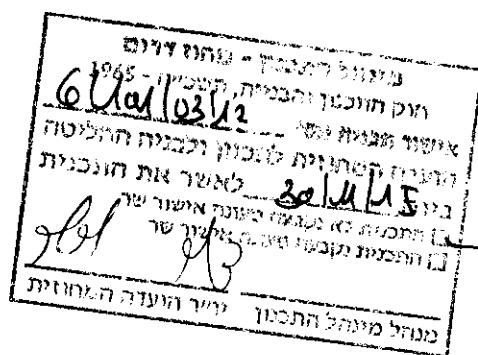 מינהל התכנון - מחוז דרום
חוק התכנון והבנייה, תשכ"ה - 1965
אישור תכנית מס'
הועדה המחוזית לתכנון ולבניה החליטה
ביום 30/11/15 לאשר את התכנית
התכנית לא נקבעה טעונה אישור שר
התכנית נקבעה טעונה אישור שר
מנהל מינהל התכנון יו"ר הועדה המחוזית